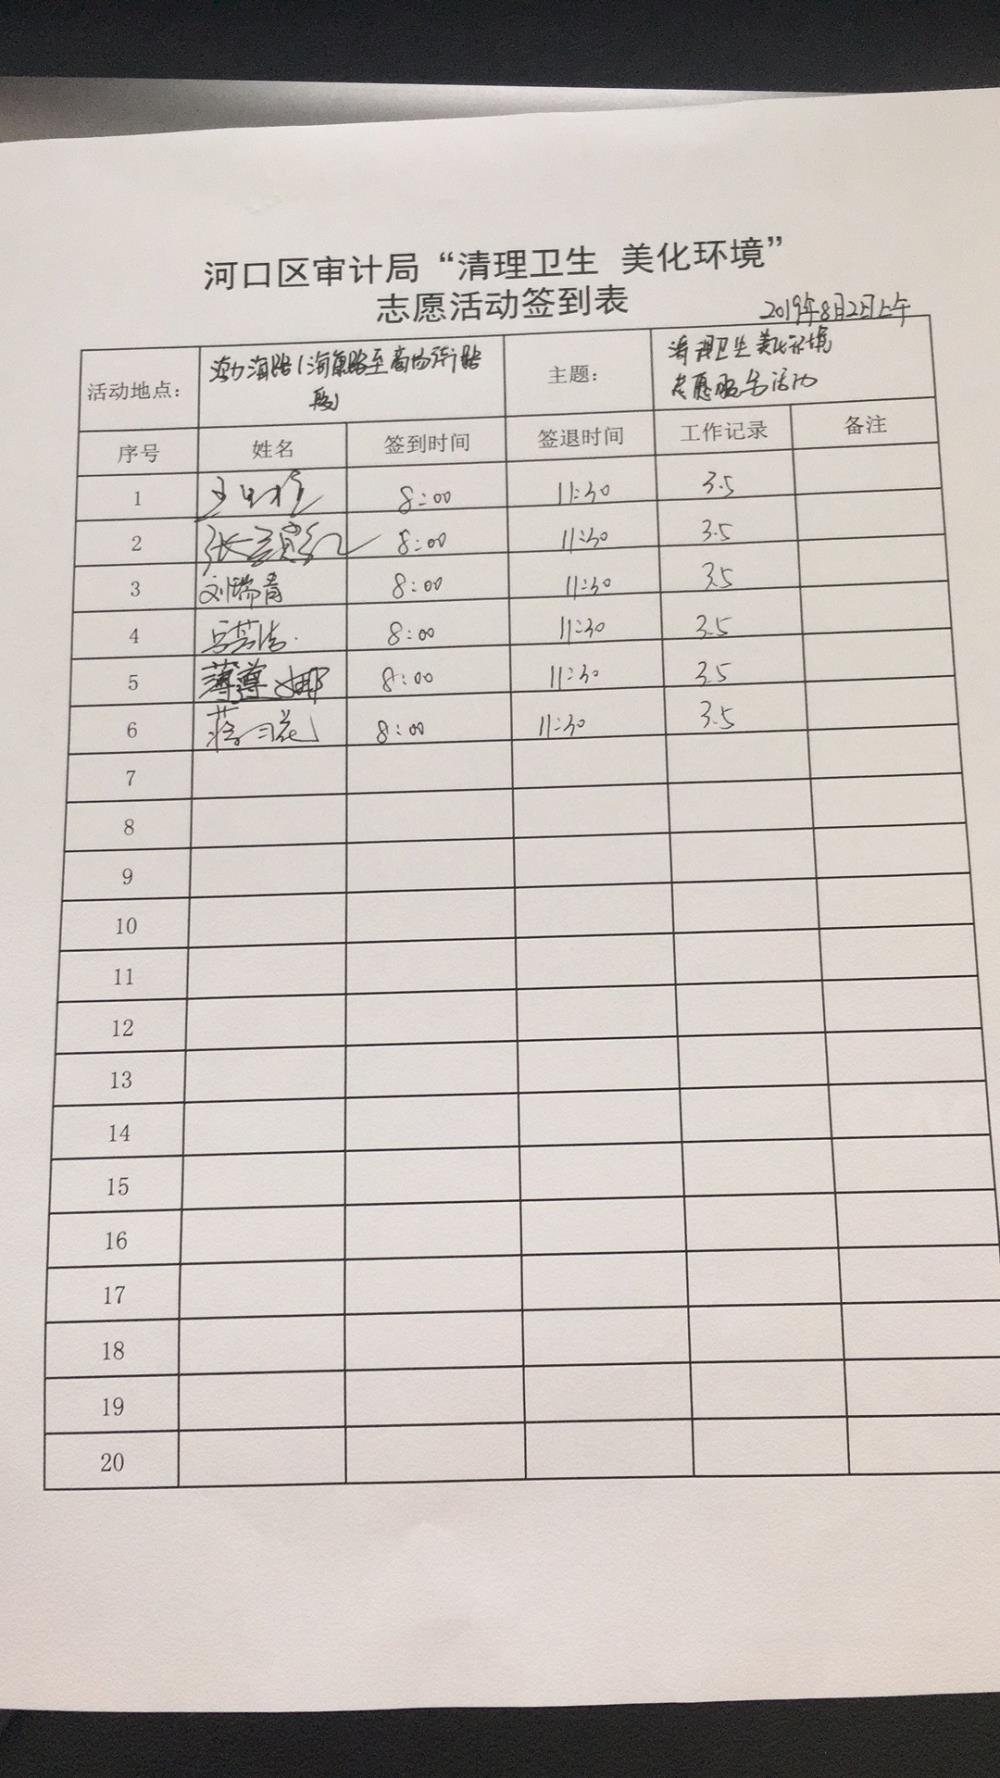 河口区审计局“清理卫生 美化环境”
志愿活动签到表
2019年8月2日上午
活动地点： 渤海路(海 路至商场街路 主题： 清理卫生美化环境
段) 志愿服务活动
序号 姓名 签到时间 签退时间 工作记录 备注
1 8:00 11:30 3.5
2 张 8:00 11:30 3.5
3 刘瑞青 8:00 11:30 3.5
4 8:00 11:30 3.5
5 薄尊娜 8:00 11:30 3.5
6 8:00 11:30 3.5
7
8
9
10
11
12
13
14
15
16
17
18
19
20